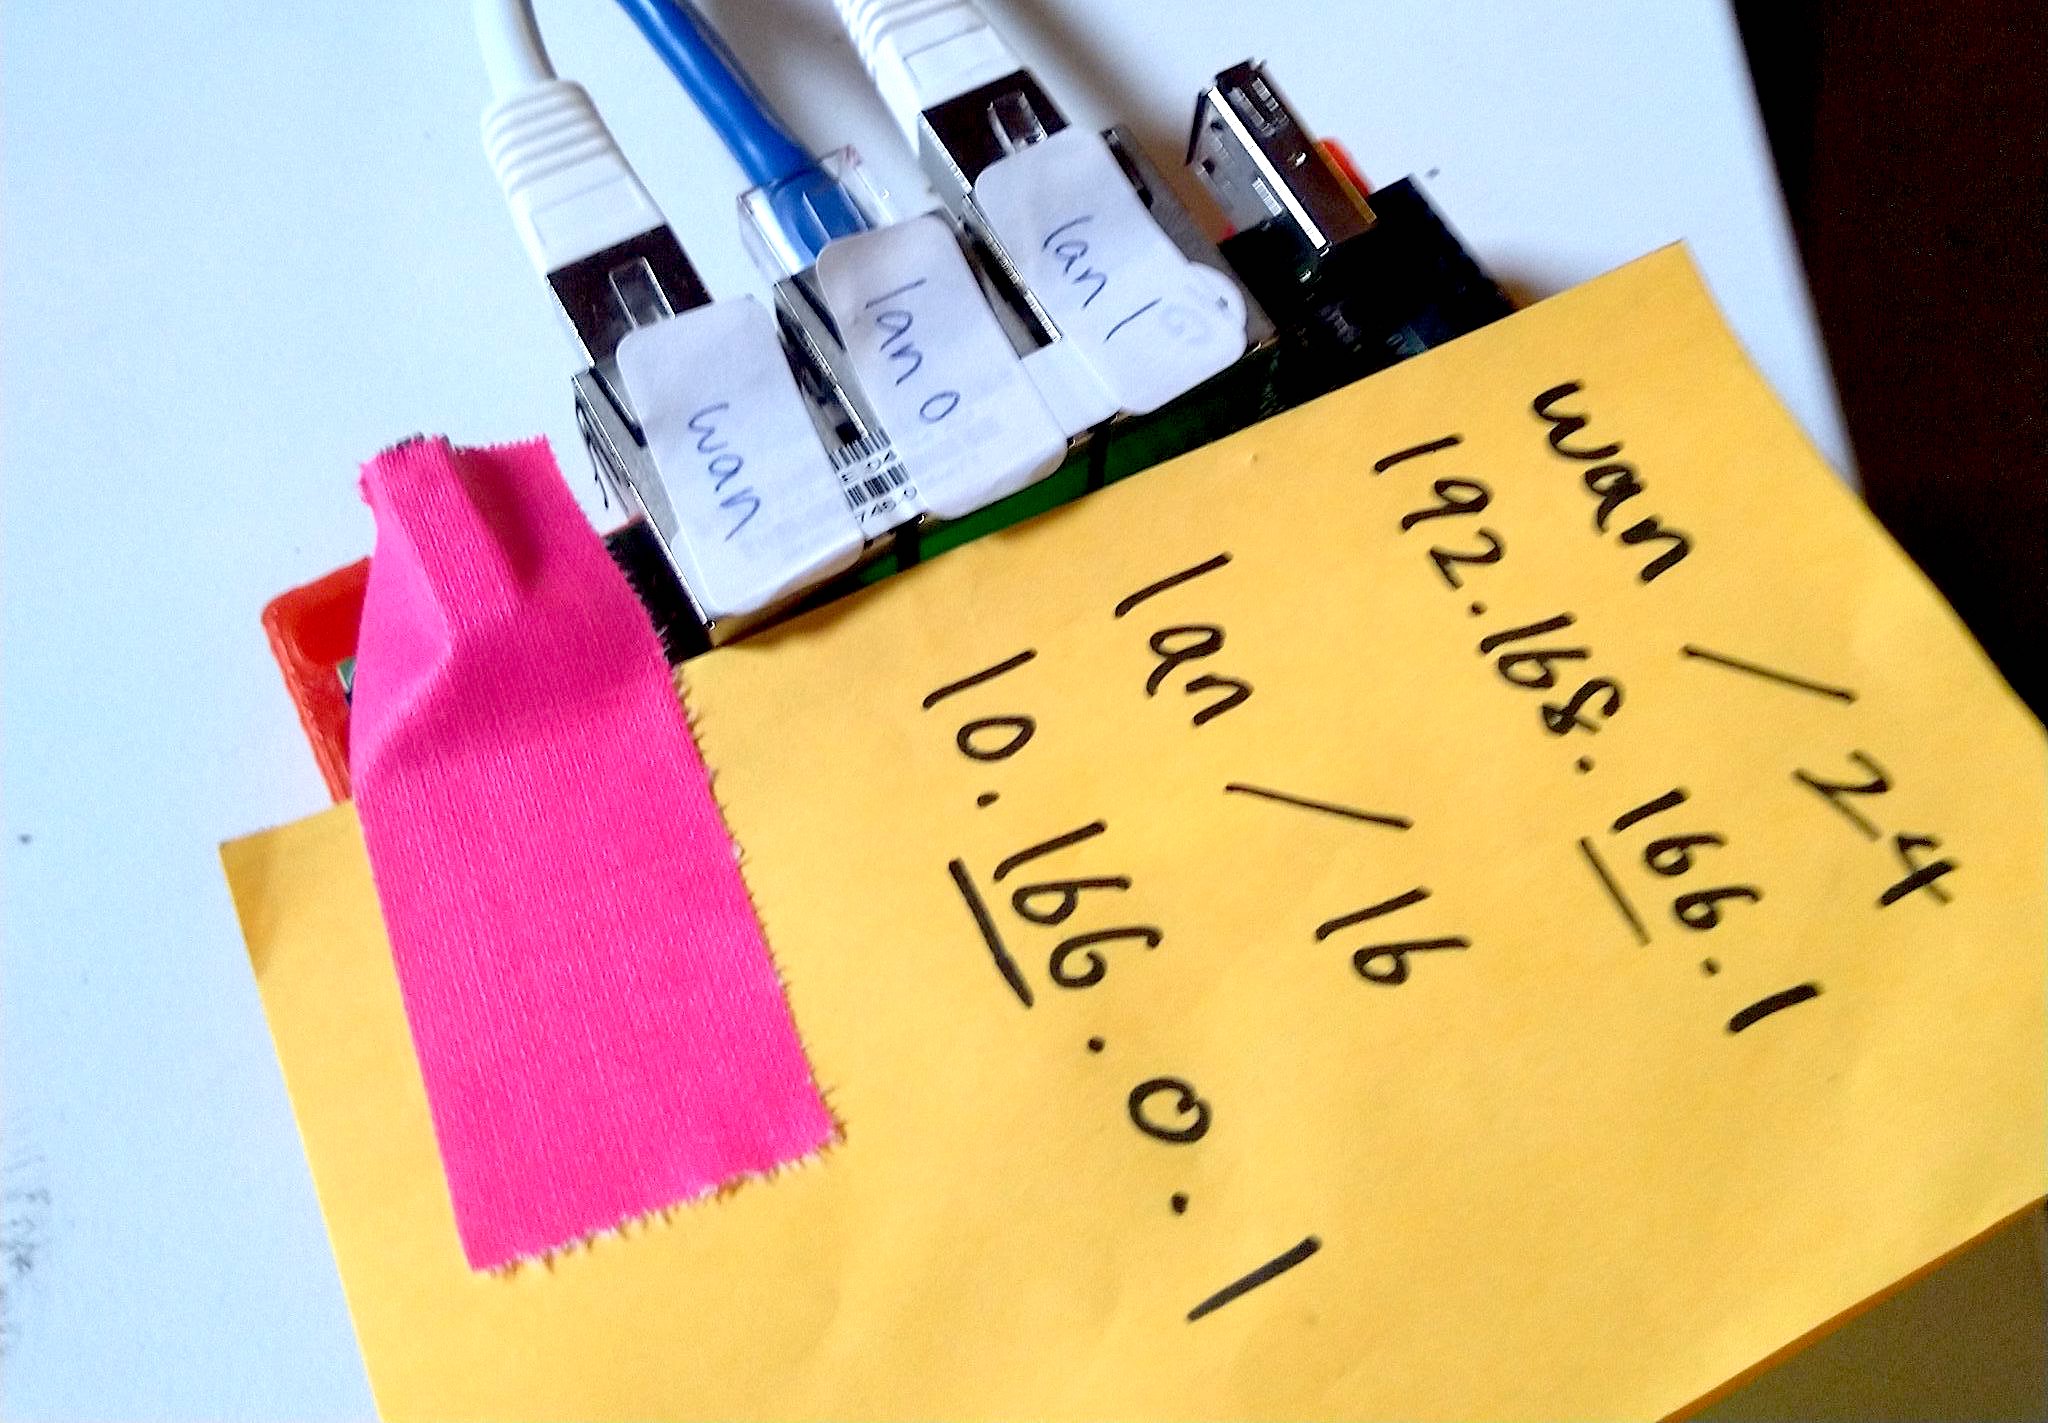 wan
lan 0
lan 1
wan / 24
192.168.166.1
lan / 16
10.166.0.1